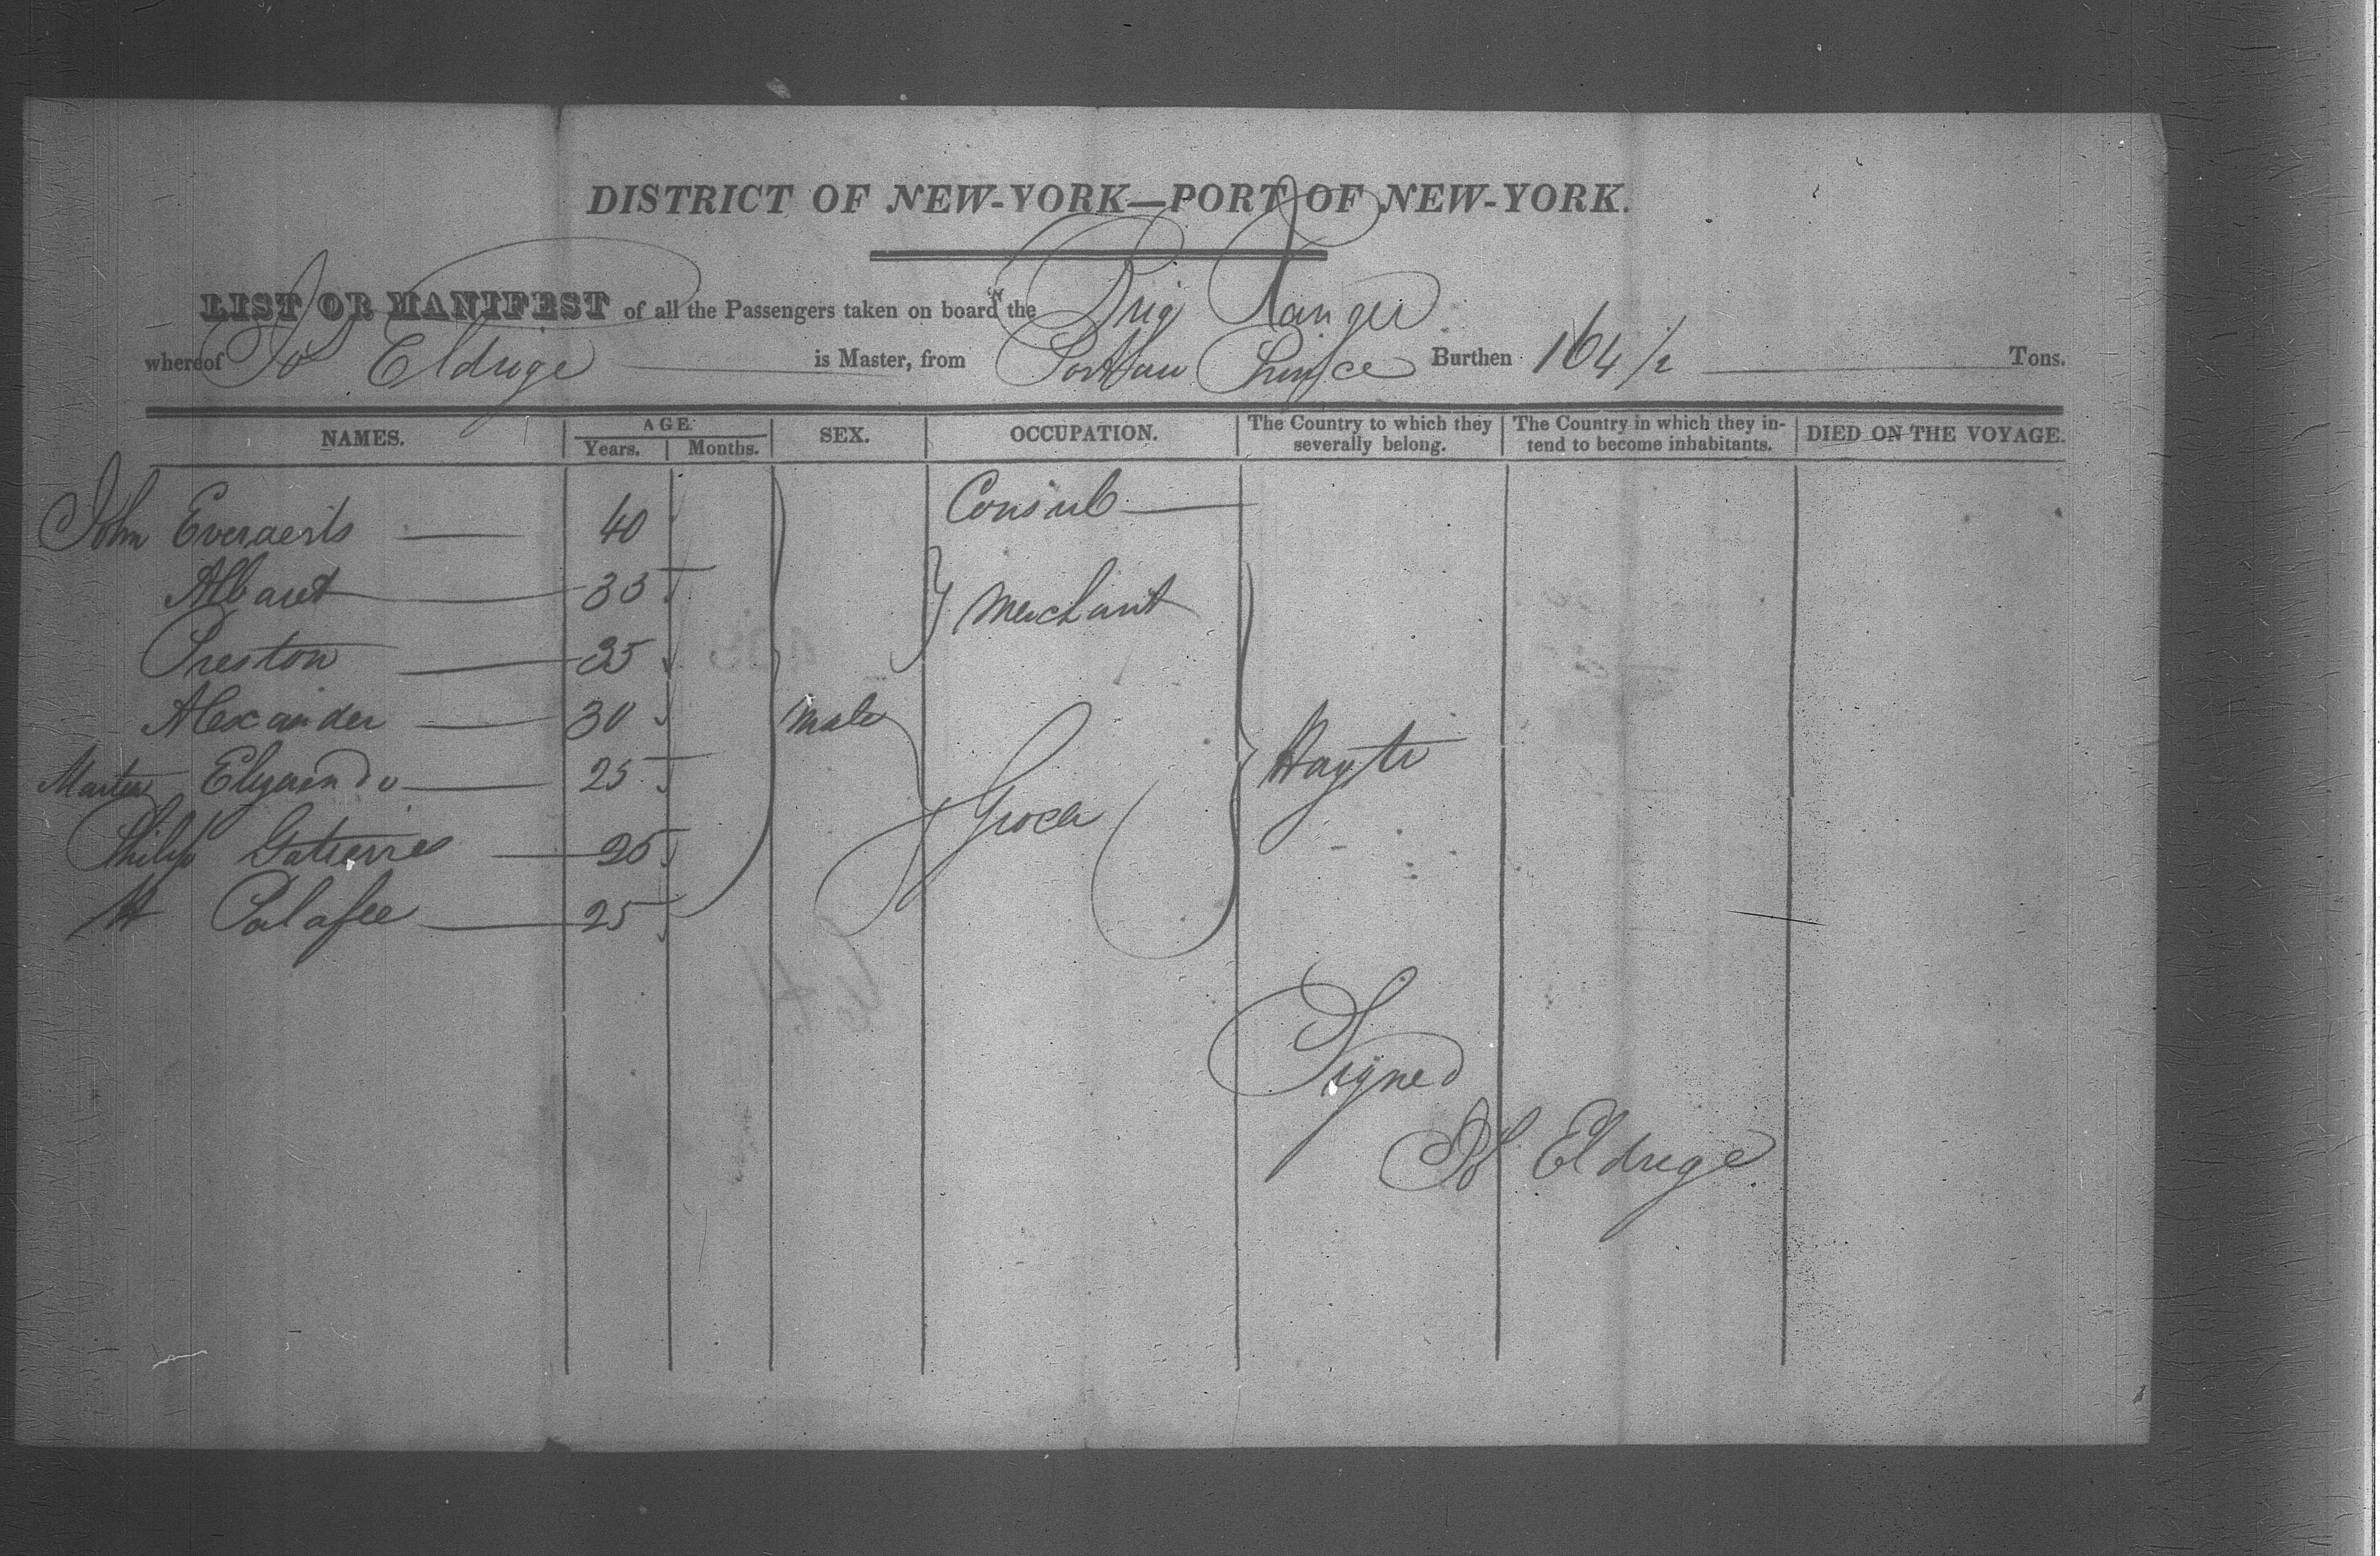 DISTRICT OF NEW-YORK—PORT OF NEW-YORK.
LIST OR MANIFEST of all the Passengers taken on board the Brig Ranger
whereof Eldrege is Master, from Port au Prince Burthen 164 1/2 Tons.
NAMES. AGE. SEX. OCCUPATION. The Country to which they severally belong. The Country in which they intend to become inhabitants. DIED ON THE VOYAGE.
Years. Months.
John Everaerts 40 Consul
Albaret 33
Preston 35 Merchant
Alexander 30 male
25 Hayti
Philip Gutierres 25 Grocer
Palafee 25
Signed
Eldrege